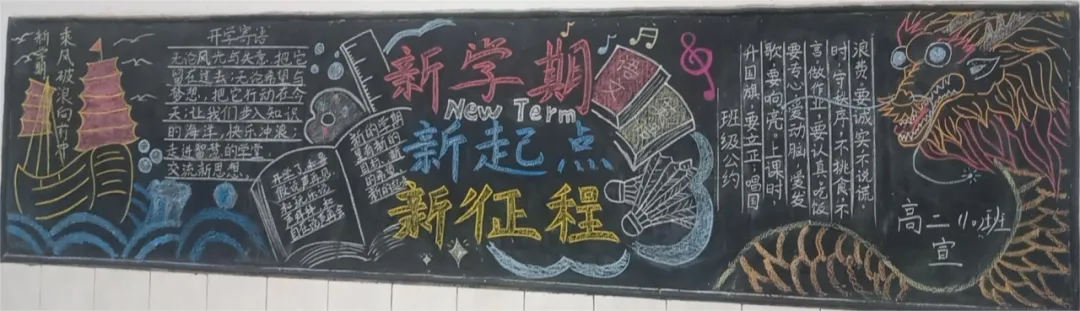 乘风破浪向前冲
新学期
开学寄语
无论风光与失意,把它
留在过去;无论希望与
梦想,把它行动在今
天;让我们步入知识
的海洋,快乐冲浪;
走进智慧的学堂,
交流新思想。
新学期
New Term
新起点
新征程
语文
班级公约
升国旗,要立正;唱国
歌,要响亮;上课时,
要专心;爱动脑,爱发
言;做作业,要认真;吃饭
时,守秩序;不挑食,不
浪费;要诚实,不说谎,
高二(10)班
宣